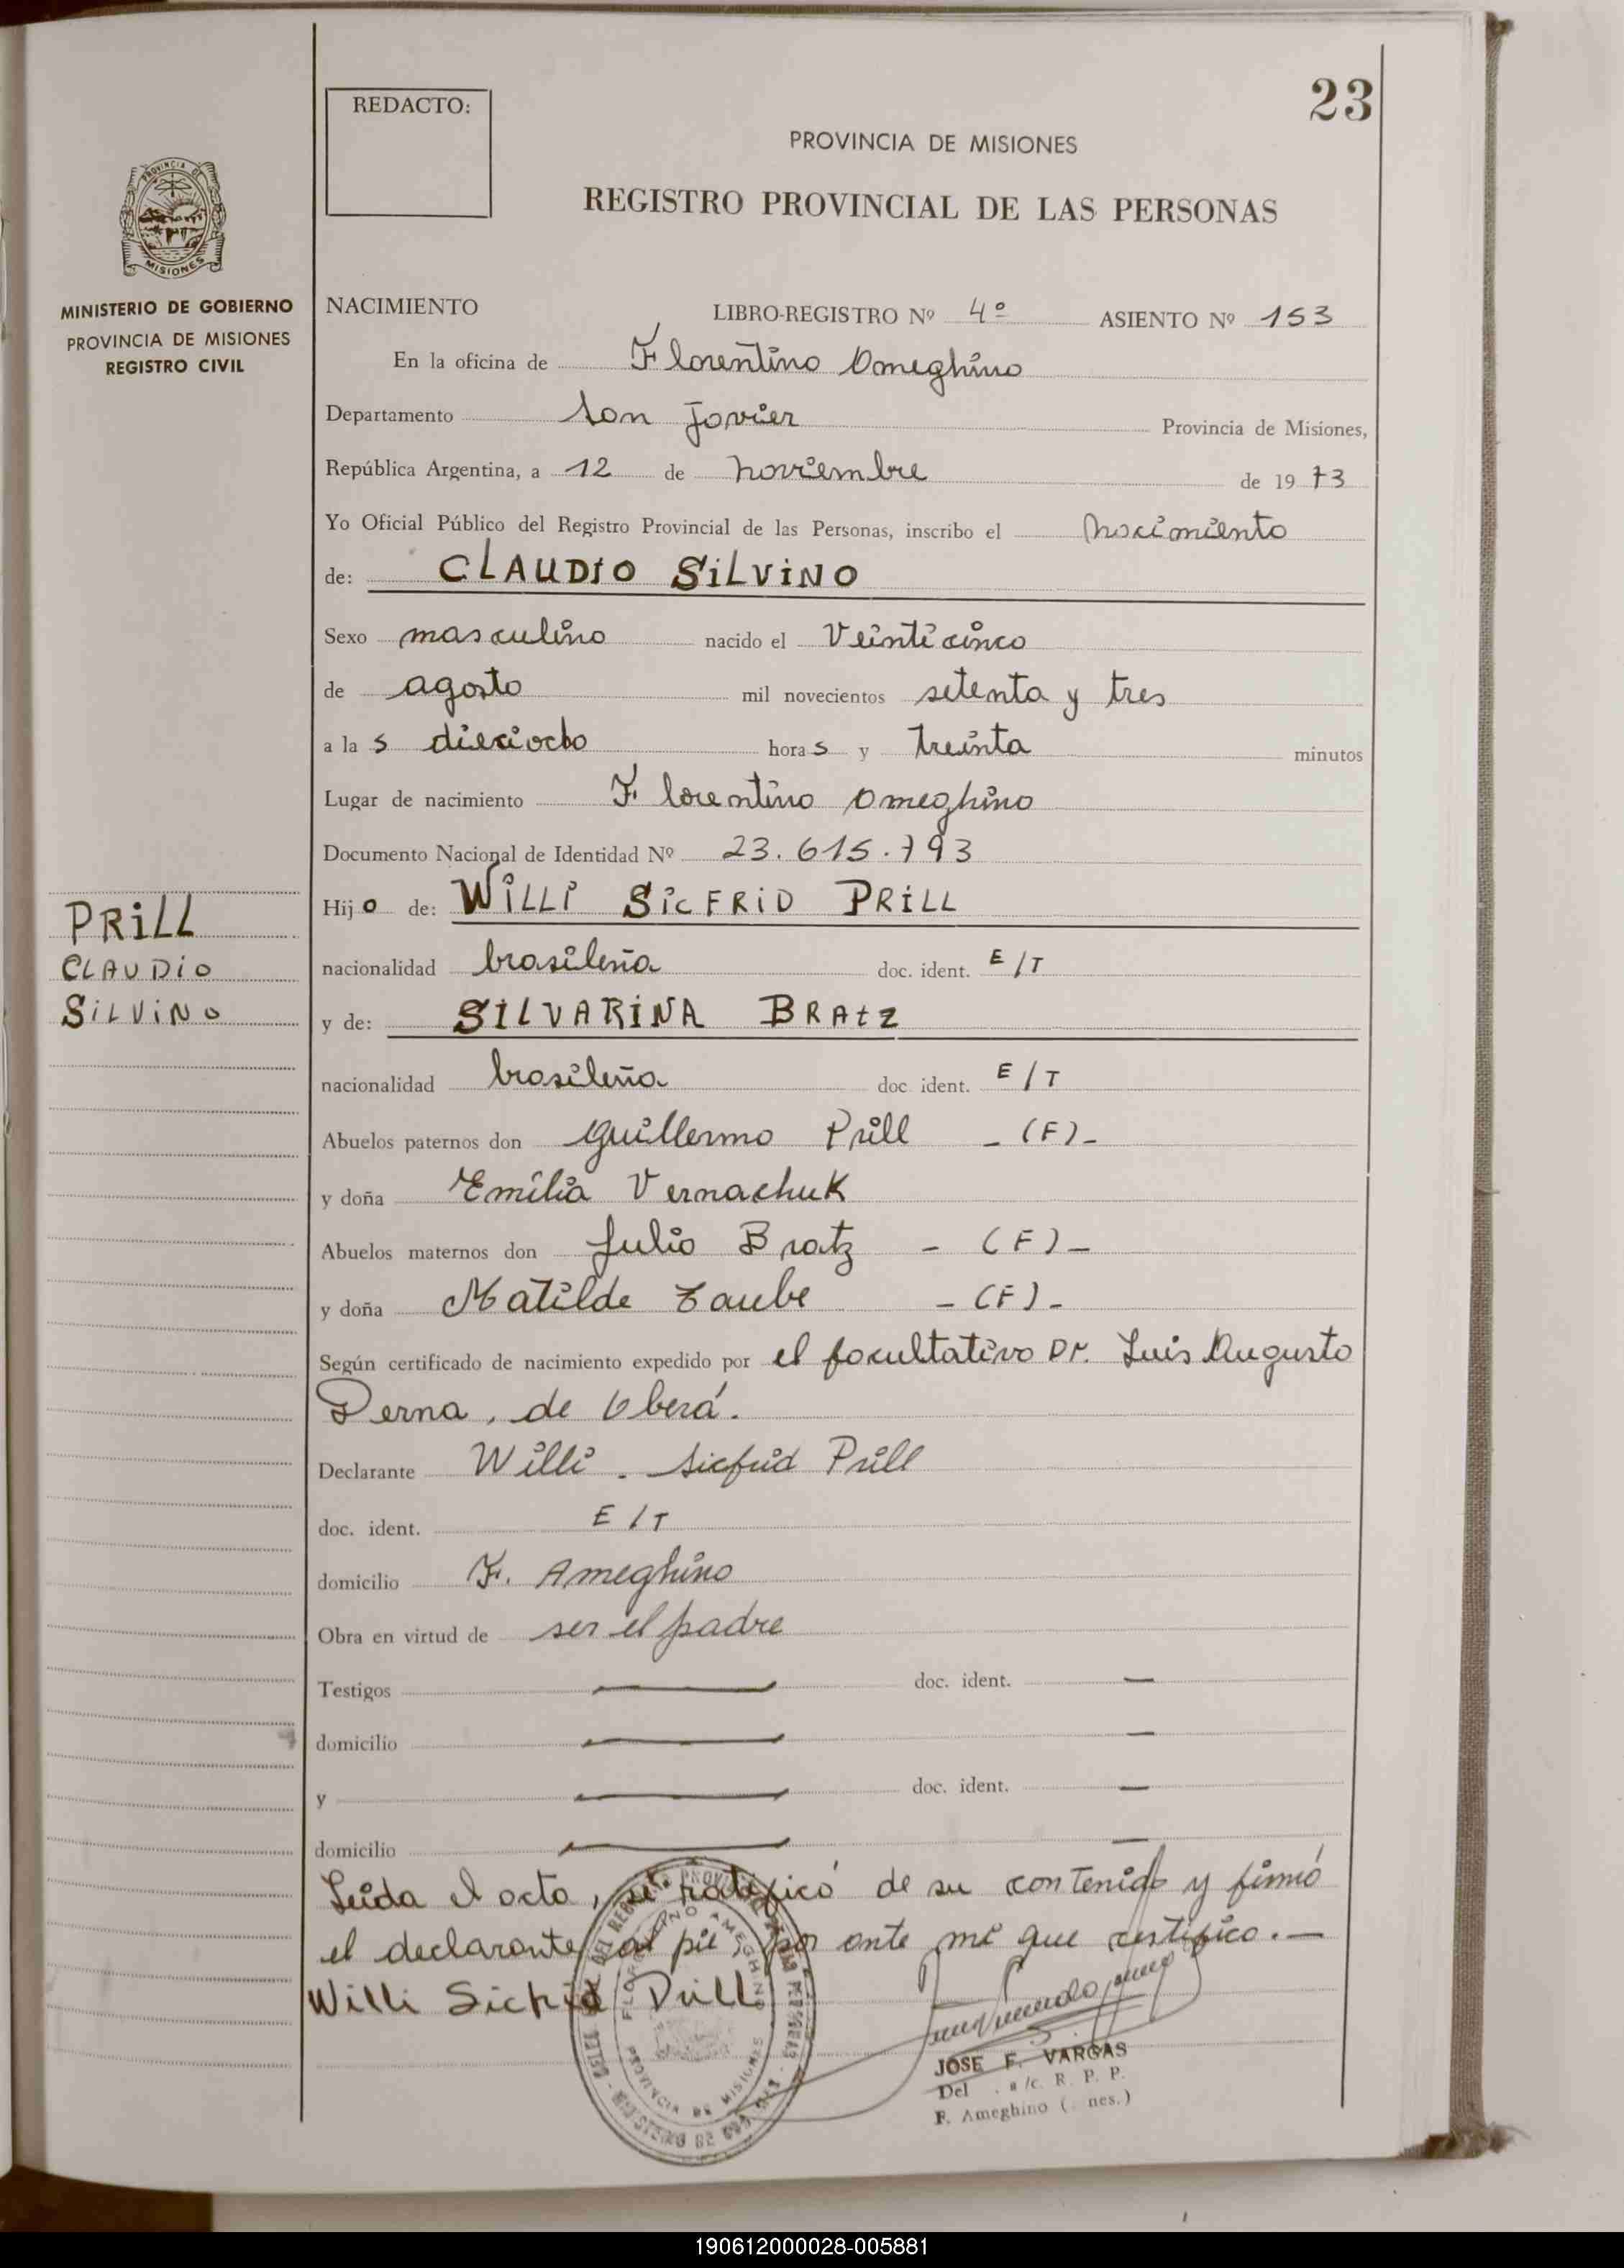 23
REDACTO:
PROVINCIA DE MISIONES
REGISTRO PROVINCIAL DE LAS PERSONAS
PROVINCIA DE
MISIONES
MINISTERIO DE GOBIERNO
PROVINCIA DE MISIONES
REGISTRO CIVIL
NACIMIENTO LIBRO-REGISTRO Nº 4º ASIENTO Nº 153
En la oficina de Florentino Ameghino
Departamento San Javier Provincia de Misiones,
República Argentina, a 12 de noviembre de 1973
Yo Oficial Público del Registro Provincial de las Personas, inscribo el Nacimiento
de: CLAUDIO SILVINO
Sexo masculino nacido el Veinticinco
de agosto mil novecientos setenta y tres
a las dieciocho horas y treinta minutos
Lugar de nacimiento Florentino Ameghino
Documento Nacional de Identidad Nº 23.615.793
Hijo de: WILLI SICFRID PRILL
PRILL
CLAUDIO
SILVINO
nacionalidad brasileña doc. ident. E/T
y de: SILVARINA BRATZ
nacionalidad brasileña doc. ident. E/T
Abuelos paternos don Guillermo Prill - (F) -
y doña Emilia Vernachuk
Abuelos maternos don Julio Bratz - (F) -
y doña Matilde Taube - (F) -
Según certificado de nacimiento expedido por el facultativo Dr. Luis Augusto
Derna, de Oberá.
Declarante Willi . Sicfrid Prill
doc. ident. E/T
domicilio F. Ameghino
Obra en virtud de ser el padre
Testigos — doc. ident. —
domicilio — —
y — doc. ident. —
domicilio — —
Leída el acta, se ratificó de su contenido y firmó
el declarante al pie, por ante mí que certifico. —
Willi Sicfrid Prill
JOSE F. VARGAS
Del . a/c. R. P. P.
F. Ameghino ( nes.)
FLORENTINO AMEGHINO
PROVINCIA DE MISIONES
190612000028-005881